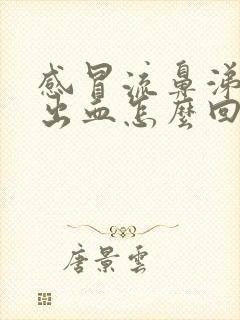 感冒流鼻涕
出血怎麼回
唐景雲